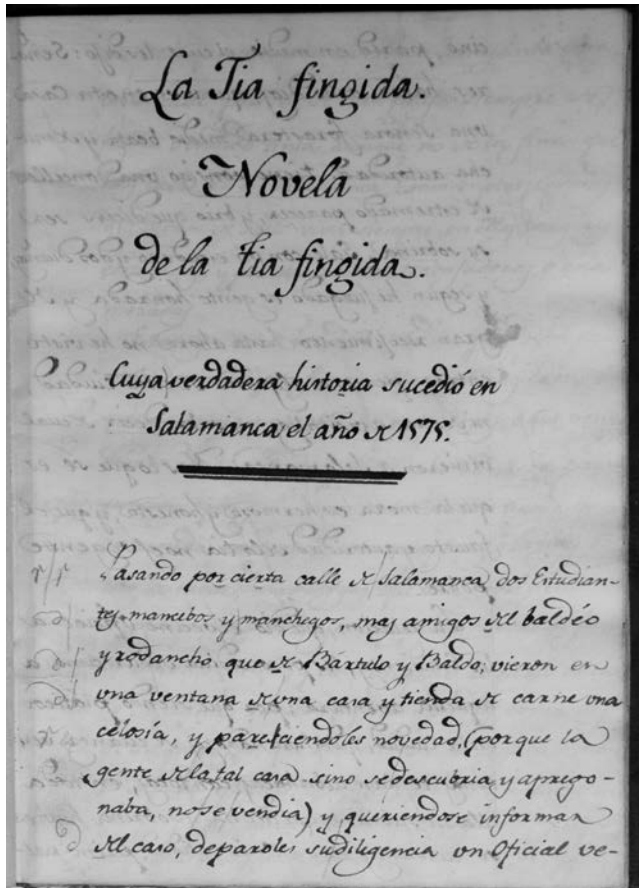 La Tia fingida.
Novela
de la tia fingida.
Cuya verdadera historia sucedió en
Salamanca el año de 1575.
Pasando por cierta calle de Salamanca dos Estudian-
tes mancebos y manchegos, mas amigos del baldéo
y rodancho que de Bártulo y Baldo, vieron en
una ventana de una casa y tienda de carne una
celosía, y pareciendoles novedad, (porque la
gente de la tal casa sino se descubria y aprego-
naba, no se vendia) y queriendose informar
del caso, deparoles su diligencia un Oficial ve-